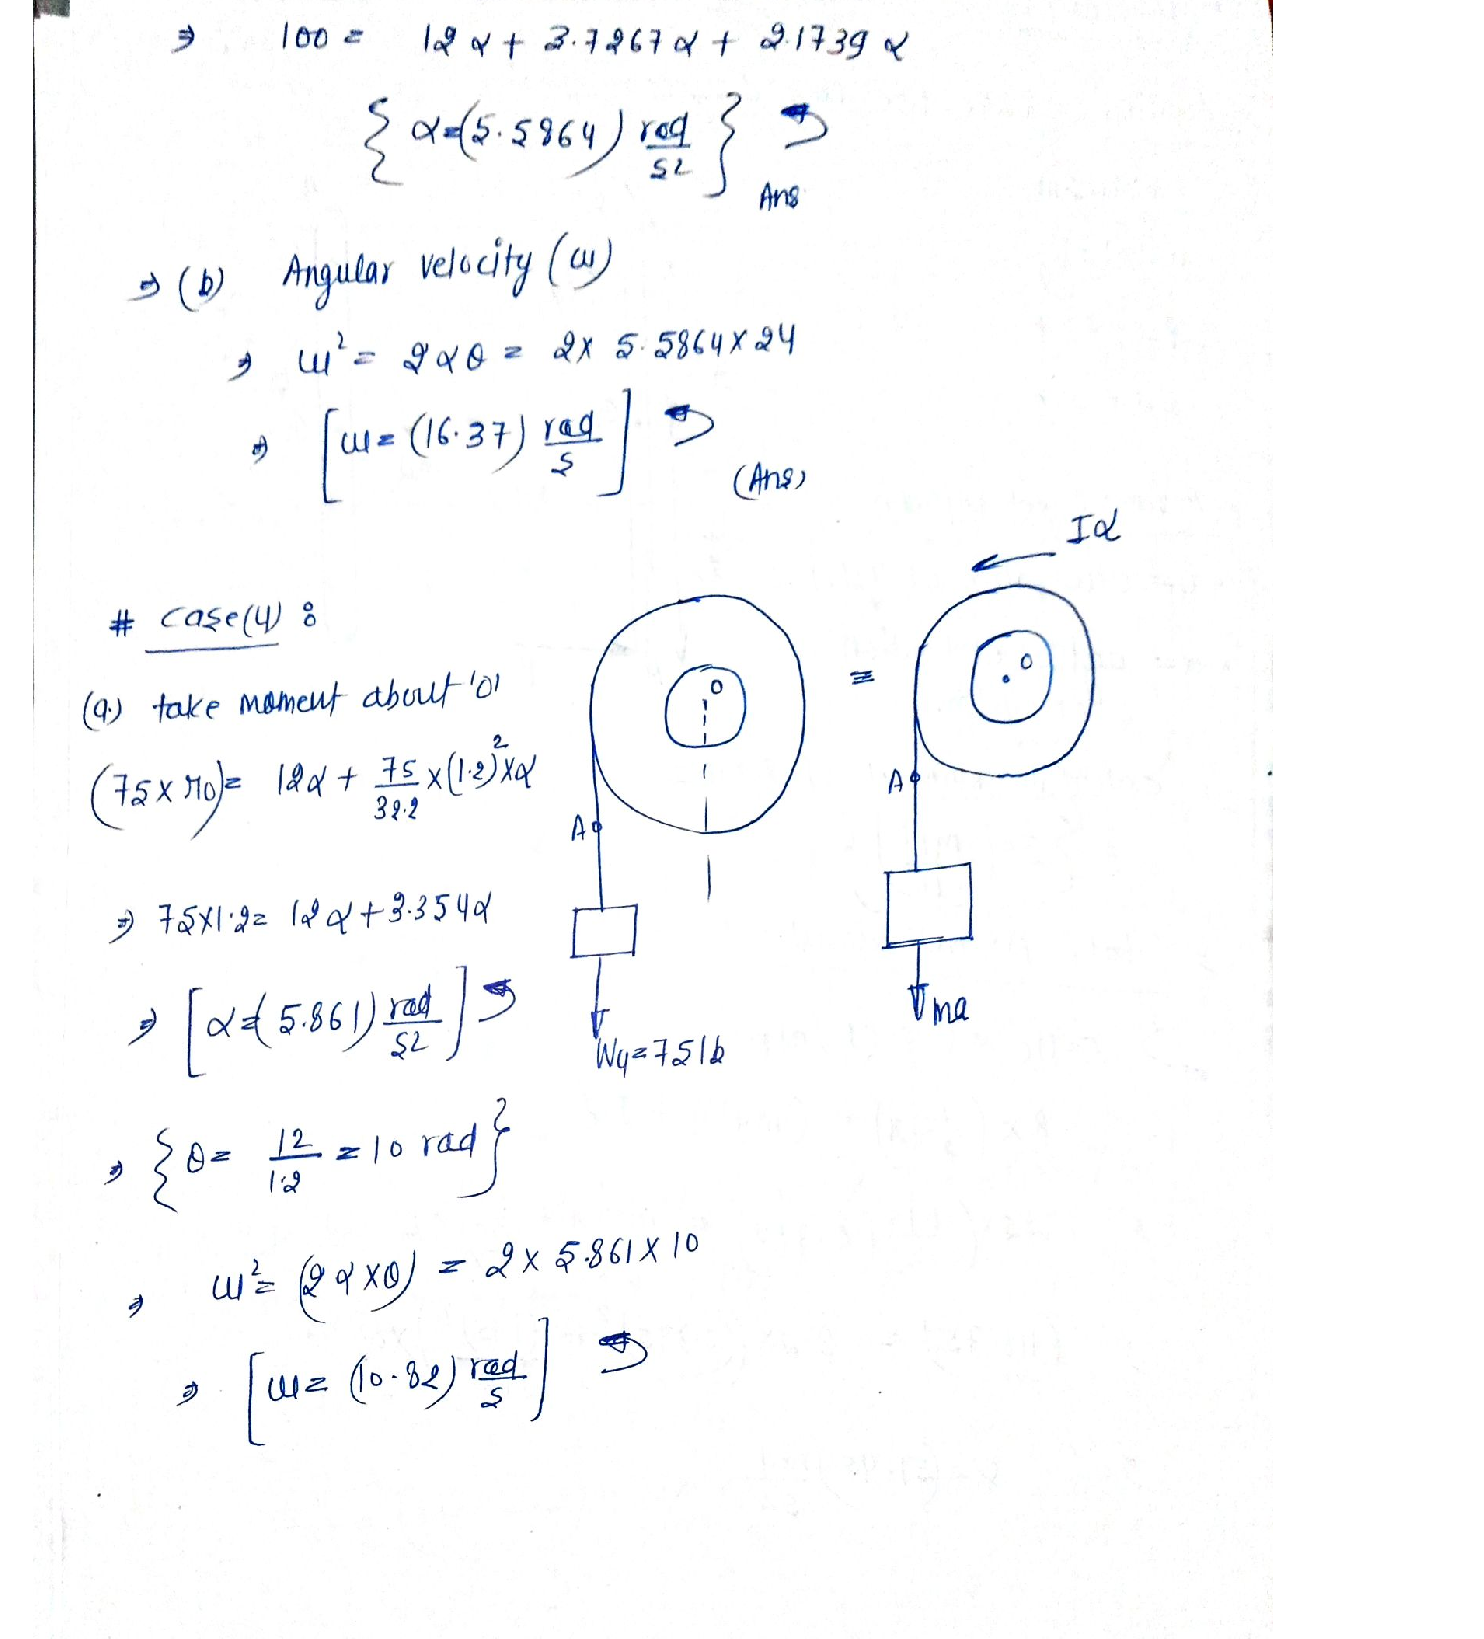 ⇒ 100 = 12 α + 3.7267 α + 2.1739 α
{ α = (5.5864) rad/s2 } ↺
Ans
⇒ (b) Angular velocity (ω)
⇒ ω² = 2αθ = 2 x 5.5864 x 24
⇒ [ ω = (16.37) rad/s ] ↺
(Ans)
Iα
# case(4) :
(a.) take moment about 'o'
(75 x r0) = 12α + 75/32.2 x (1.2)² x α
⇒ 75x1.2 = 12 α + 3.354 α
⇒ [ α = (5.861) rad/s2 ] ↺
⇒ { θ = 12/1.2 = 10 rad }
⇒ ω² = (2 α x θ) = 2 x 5.861 x 10
⇒ [ ω = (10.82) rad/s ] ↺
o
A
W4 = 75 lb
=
o
A
ma